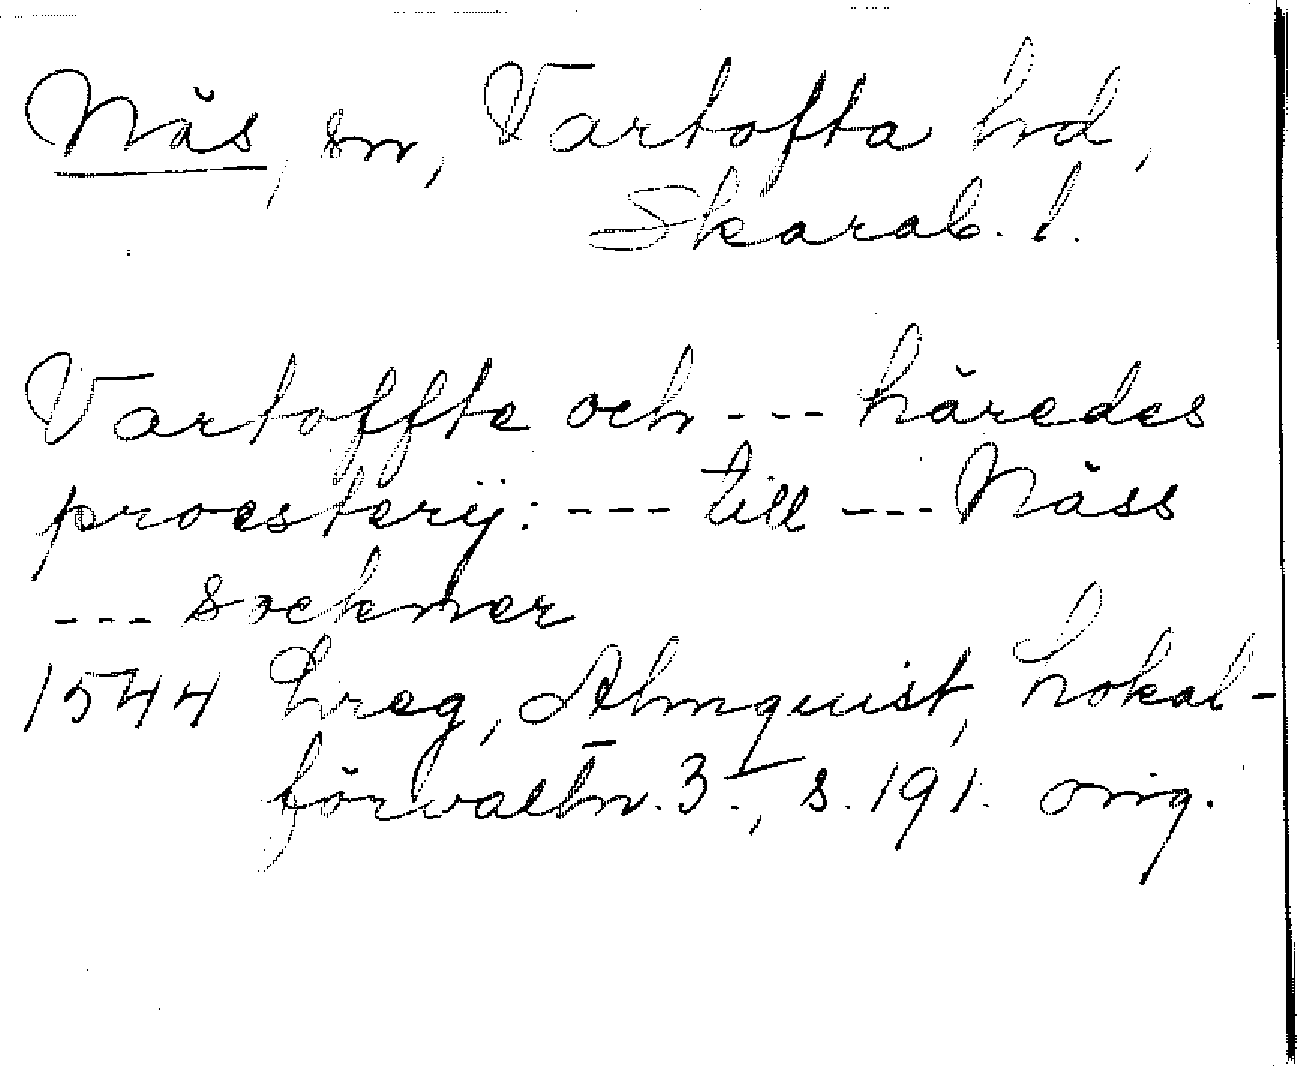 Näs, sn, Vartofta hd,
Skarab. l.
Vartoffte och --- häredes
proesterij: --- till --- Näss
--- sockner
1544 Lreg, Almquist, Lokal-
förvaltn. 3:1, s. 191. orig.